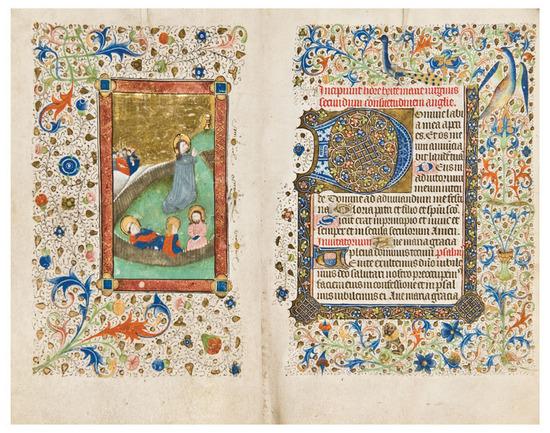 Incipiunt hore beate marie virginis
secundum consuetudinem anglie.
Domine labi
a mea aperi
es. Et os me
um annuncia
bit laudem
Deus in
adiutorium
meum inten
de Domine ad adiuuandum me festi
na. Gloria patri et filio et spiritui sco.
Sicut erat in principio et nunc et
semper et in secula seculorum Amen.
Inuitatorium Aue maria gracia
plena dominus tecum. psalm
Uenite exultemus domino iubile
mus deo salutari nostro preocupem
faciem eius in confessione et in psal
mis iubilemus ei. Aue maria gracia